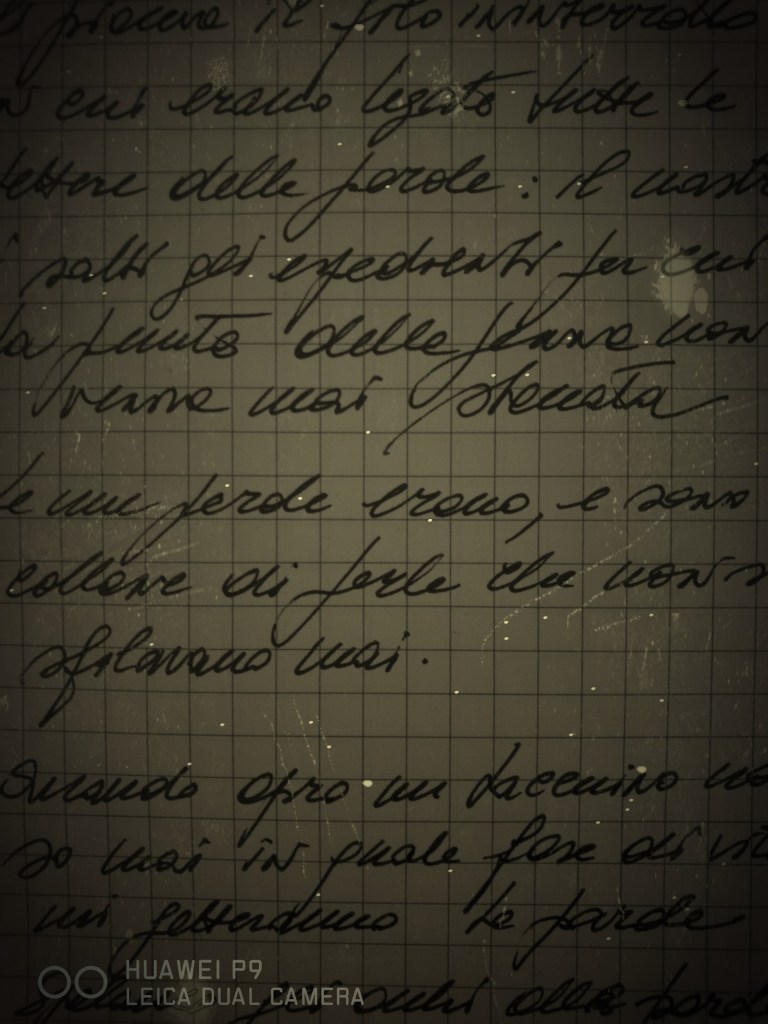 piaceva il filo ininterrotto
cui erano legate tutte le
lettere delle parole: il nastro
i salti gli espedienti per cui
la punta della penna non
veniva mai staccata
Le mie parole erano, e sono
collane di perle che non s
sfilavano mai.
Quando apro un taccuino no
so mai in quale fase di vit
mi getteranno le parole
gli occhi alle parol
HUAWEI P9
LEICA DUAL CAMERA